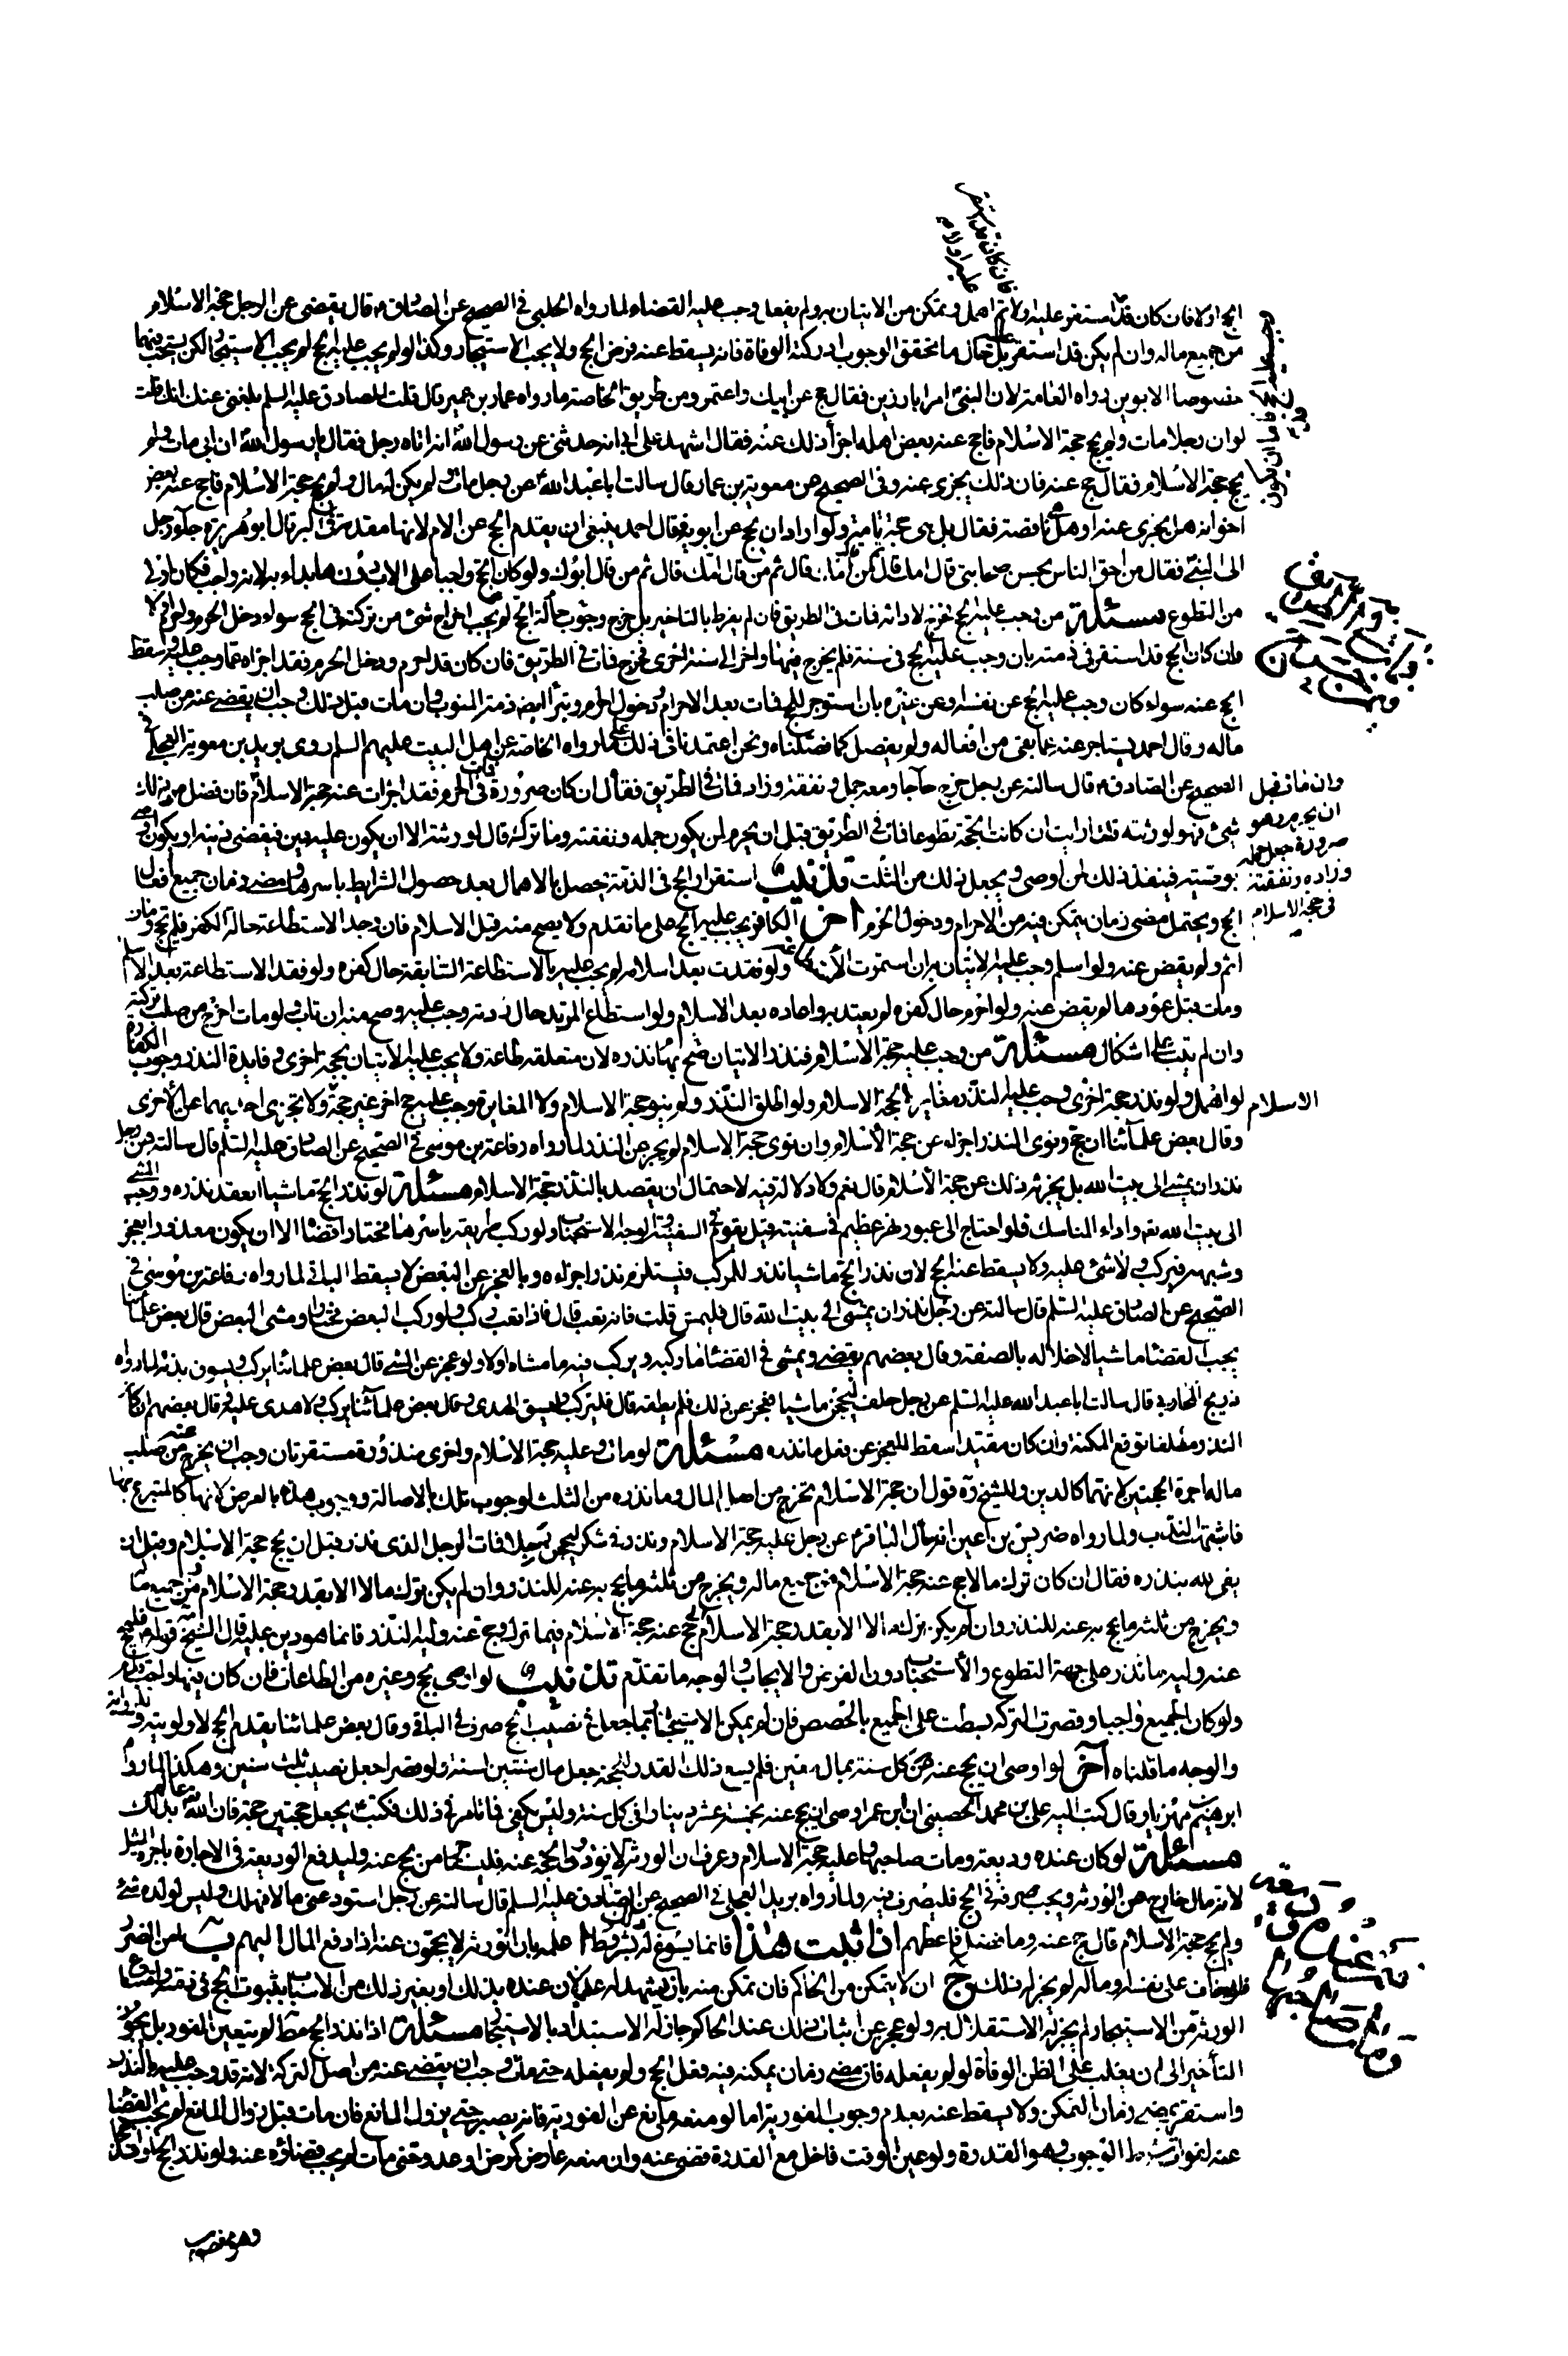 الحج اولا فان كان قد استقر عليه ولا ثم اهمل وتمكن من الاتيان به ولم يفعل وجب عليه القضاء لما رواه الحلبي في الصحيح عن الصادق قال يقضى عن الرجل حجة الاسلام
من جميع ماله وان لم يكن قد استقر بل حال ما تحقق الوجوب ادركته الوفاة فانه يسقط عنه فرض الحج ولا يجب الاستيجار وكذا لو لم يجب عليه الحج لم يجب الاستيجار لكن يستحب فيهما
خصوصا الابوين رواه العامة لان النبي امر ابا رزين فقال حج عن ابيك واعتمر ومن طريق الخاصة ما رواه عمار بن عمير قال قلت للصادق عليه السلم بلغنى عنك انك قلت
لو ان رجلا مات ولم يحج حجة الاسلام فاحج عنه بعض اهله اجزأ ذلك عنه فقال اشهد على ابى انه حدثنى عن رسول الله انه اتاه رجل فقال يا رسول الله ان ابى مات ولم
يحج حجة الاسلام فقال حج عنه فان ذلك يجزى عنه وفى الصحيح عن معوية بن عمار قال سالت ابا عبد الله عن رجل مات ولم يكن له مال ولم يحج حجة الاسلام فاحج عنه بعض
اخوانه هل يجزى عنه او هل هى ناقصة فقال بل هى حجة تامة ولو اراد ان يحج عن ابويه قال احمد ينبغى ان يقدم الحج عن الام لانها مقدمة في البر قال ابو هريرة جاء رجل
الى النبي فقال من احق الناس بحسن صحابتى قال امك قال ثم من قال امك قال ثم من قال امك قال ثم من قال ابوك ولو كان الحج واجبا على الاب دونها بداء به لانه واجب فكان اولى
من التطوع مسئلة من وجب عليه الحج فخرج لادائه فمات فى الطريق فان لم يفرط بالتاخير بل خرج وجوب حالة الحج لم يجب اخراج شئ من تركته فى الحج سواء دخل الحرم واحرم او لا
وان كان الحج قد استقر فى ذمته بان وجب عليه الحج فى سنة فلم يخرج فيها واخر الى سنة اخرى فخرج فمات فى الطريق فان كان قد احرم ودخل الحرم فقد اجزاه عما وجب عليه وسقط
الحج عنه سواء كان وجب عليه الحج عن نفسه او عن غيره بان استوجر للحج فمات بعد الاحرام ودخول الحرم وتبرأ ايضا ذمة المنوب وان مات قبل ذلك وجب ان يقضى عنه من صلب
ماله وقال احمد يستاجر عنه عما بقى من افعاله ولم يفصل كما فصلناه ونحن اعتمدنا فى ذلك على ما رواه الخاصة عن اهل البيت عليهم السلم روى بريد بن معوية العجلى فى
الصحيح عن الصادق قال سالته عن رجل خرج حاجا ومعه جمل ونفقة وزاد فمات فى الطريق فقال ان كان صرورة فمات فى الحرم فقد اجزات عنه حجة الاسلام فان فضل من ذلك
شئ فهو لورثته قلت ارايت ان كانت الحجة تطوعا فمات فى الطريق قبل ان يحرم لمن يكون جمله ونفقته وما تركه قال لورثته الا ان يكون عليه دين فيقضى دينه او يكون اوصى
بوصيته فينفذ ذلك لمن اوصى ويجعل ذلك من الثلث تذنيب استقرار الحج فى الذمة يحصل بالاهمال بعد حصول الشرايط باسرها ومضى زمان جميع افعال
الحج ويحتمل مضى زمان يتمكن فيه من الاحرام ودخول الحرم آخر الكافر يجب عليه الحج على ما تقدم ولا يصح منه قبل الاسلام فان وجد الاستطاعة حالة الكفر فلم يحج ومات
اثم ولم يقض عنه ولو اسلم وجب عليه الاتيان به ان استمرت الاستطاعة ولو فقدت بعد اسلامه لم يجب عليه بالاستطاعة السابقة حال كفره ولو فقد الاستطاعة بعد الاسلام
ومات قبل عودها لم يقض عنه ولو احرم حال كفره لم يعتد به واعاده بعد الاسلام ولو استطاع المرتد حال ردته وجب عليه وصح منه ان تاب ولو مات اخرج من صلب تركته
وان لم يتب على اشكال مسئلة من وجب عليه حجة الاسلام فنذر الاتيان صح بها نذره لان متعلقه طاعة ولا يجب عليه الاتيان بحجة اخرى وفايدة النذر وجوب الكفارة
لو اهمل ولو نذر حجة اخرى وجب عليه النذر مغايرة لحجة الاسلام ولو اطلق النذر ولم ينو حجة الاسلام ولا المغايرة وجب عليه حج اخر غير حجة ولا تجزى احديهما عن الاخرى
وقال بعض علمائنا ان حج ونوى النذر اجزاه عن حجة الاسلام وان نوى حجة الاسلام لم يجز عن النذر لما رواه رفاعة بن موسى فى الصحيح عن الصادق عليه السلم قال سالته عن رجل
نذر ان يمشى الى بيت الله هل يجزيه ذلك عن حجة الاسلام قال نعم ولا دلالة فيه لاحتمال ان يقصد بالنذر حجة الاسلام مسئلة لو نذر الحج ماشيا انعقد نذره ووجب المشى
الى بيت الله تع واداء المناسك فلو احتاج الى عبور نهر عظيم فى سفينة قيل يقوم فى السفينة والوجه الاستحباب ولو ركب طريقه باسرها مختارا قضا الا ان يكون معذورا بعجز
وشبهه فيركب ولا شئ عليه ولا يسقط عنه الحج لان نذر الحج ماشيا نذر للمركب فيستلزم نذر اجزاءه وبالعجز عن البعض لا يسقط الباقى لما رواه رفاعة بن موسى فى
الصحيح عن الصادق عليه السلم قال سالته عن رجل نذر ان يمشى الى بيت الله قال فليمش قلت فانه تعب قال فاذا تعب ركب ولو ركب البعض مختارا ومشى البعض قال بعض علمائنا
يجب القضا ماشيا لاخلاله بالصفة وقال بعضهم يقضى ويمشى فى القضا ما ركبه ويركب فيه ما مشاه اولا ولو عجز عن المشى قال بعض علمائنا يركب ويسوق بدنة لما رواه
ذريح المحاربى قال سالت ابا عبد الله عليه السلم عن رجل حلف ليحجن ماشيا فعجز عن ذلك فلم يطقه قال فليركب وليسق الهدى وقال بعض علمائنا يركب ولا هدى عليه وقال بعضهم ان كان
النذر مطلقا توقع المكنة وان كان مقيدا سقط للعجز عن فعل ما نذره مسئلة لو مات وعليه حجة الاسلام واخرى منذورة مستقرتان وجب ان يخرج عنه من صلب
ماله اجرة الحجتين لانهما كالدين وللشيخ ره قول ان حجة الاسلام تخرج من اصل المال وما نذره من الثلث لوجوب تلك بالاصالة ووجوب هذه بالعرض لانها كالمتبرع بها
فاشبهت الندب ولما رواه ضريس بن اعين انه سأل الباقر عن رجل عليه حجة الاسلام ونذر فى شكر ليحجن رجلا فمات الرجل الذى نذر قبل ان يحج حجة الاسلام وقبل ان
يفى لله بنذره فقال ان كان ترك مالا حج عنه حجة الاسلام من جميع ماله ويخرج من ثلثه ما يحج به عنه للنذر وان لم يكن ترك مالا الا بقدر حجة الاسلام من جميع ما
ويخرج من ثلثه ما يحج به عنه للنذر وان لم يكن ترك مالا الا بقدر حجة الاسلام حج عنه حجة الاسلام فيما ترك وحج عنه وليه النذر فانما هو دين عليه قال الشيخ قوله فليحج
عنه وليه ما نذر على جهة التطوع والاستحباب دون الفرض والايجاب والوجه ما تقدم تذنيب لو اوصى بحج وغيره من الطاعات فان كان فيها واجب قدم
ولو كان الجميع واجبا وقصرت التركة بسطت على الجميع بالحصص فان لم يمكن الاستيجار بما جعل فى نصيب الحج صرف فى الباقى وقال بعض علمائنا يقدم الحج لاولويته
والوجه ما قلناه آخر لو اوصى ان يحج عنه من كل سنة بمال معين فلم يسع ذلك القدر للحجة جعل مال سنتين لسنة ولو قصرا جعل نصيب ثلث سنين وهكذا لما رواه
ابرهيم بن مهزيار وقال كتب اليه على بن محمد الحصينى ان ابن عمر اوصى ان يحج عنه بخمسة عشر دينارا فى كل سنة وليس يكفى فما تامر فى ذلك فكتب يجعل حجتين حجة فان الله عالم بذلك
مسئلة لو كان عنده وديعة ومات صاحبها وعليه حجة الاسلام وعرف ان الورثة لا يؤدون الحجة عنه فليحج عنه من يحج عنه وليدفع الوديعة فى الاجارة باجرة المثل
لانه مال خارج عن الورثة ويجب صرفه فى الحج فليصرف فيه ولما رواه بريد العجلى فى الصحيح عن الصادق عليه السلم قال سالته عن رجل استودعنى مالا فهلك وليس لولده شئ
ولم يحج حجة الاسلام قال حج عنه وما فضل فاعطهم اذا ثبت هذا فانما يسوغ له بشروط ا علمه بان الورثة لا يحجون عنه اذا دفع المال اليهم ب امن الضرر
فلو خاف على نفسه او ماله لم يجز له ذلك ج ان لا يتمكن من الحاكم فان تمكن منه بان يشهد له عدلان عنده بذلك او بغير ذلك من الاسباب بثبوت الحج فى ذمته وامتناع
الورثة من الاستيجار لم يجز له الاستقلال به ولو عجز عن اثبات ذلك عند الحاكم جاز له الاستبداد بالاستيجار مسئلة اذا نذر الحج مطلقا لم يتعين الفور بل يجوز
التأخير الى ان يغلب على الظن الوفاة لو لم يفعله فان مضى زمان يمكنه فيه فعل الحج ولم يفعله حتى مات وجب ان يقضى عنه من اصل التركة لانه قد وجب عليه بالنذر
واستقر بمضى زمان التمكن ولا يسقط عنه بعدم وجوب الفورية اما لو منعه مانع عن الفورية فانه يصبر حتى يزول المانع فان مات قبل زوال المانع لم يجب القضا
عنه لفوات شرط الوجوب وهو القدرة ولو عين الوقت فاخل مع القدرة قضى عنه وان منعه عارض كمرض او عدو حتى مات لم يجب قضاؤه عنه ولو نذر الحج او افسد
وان مات قبل
ان يحرم وهو
صرورة جعل جمله
وزاده ونفقته
فى حجة الاسلام
الاسلام